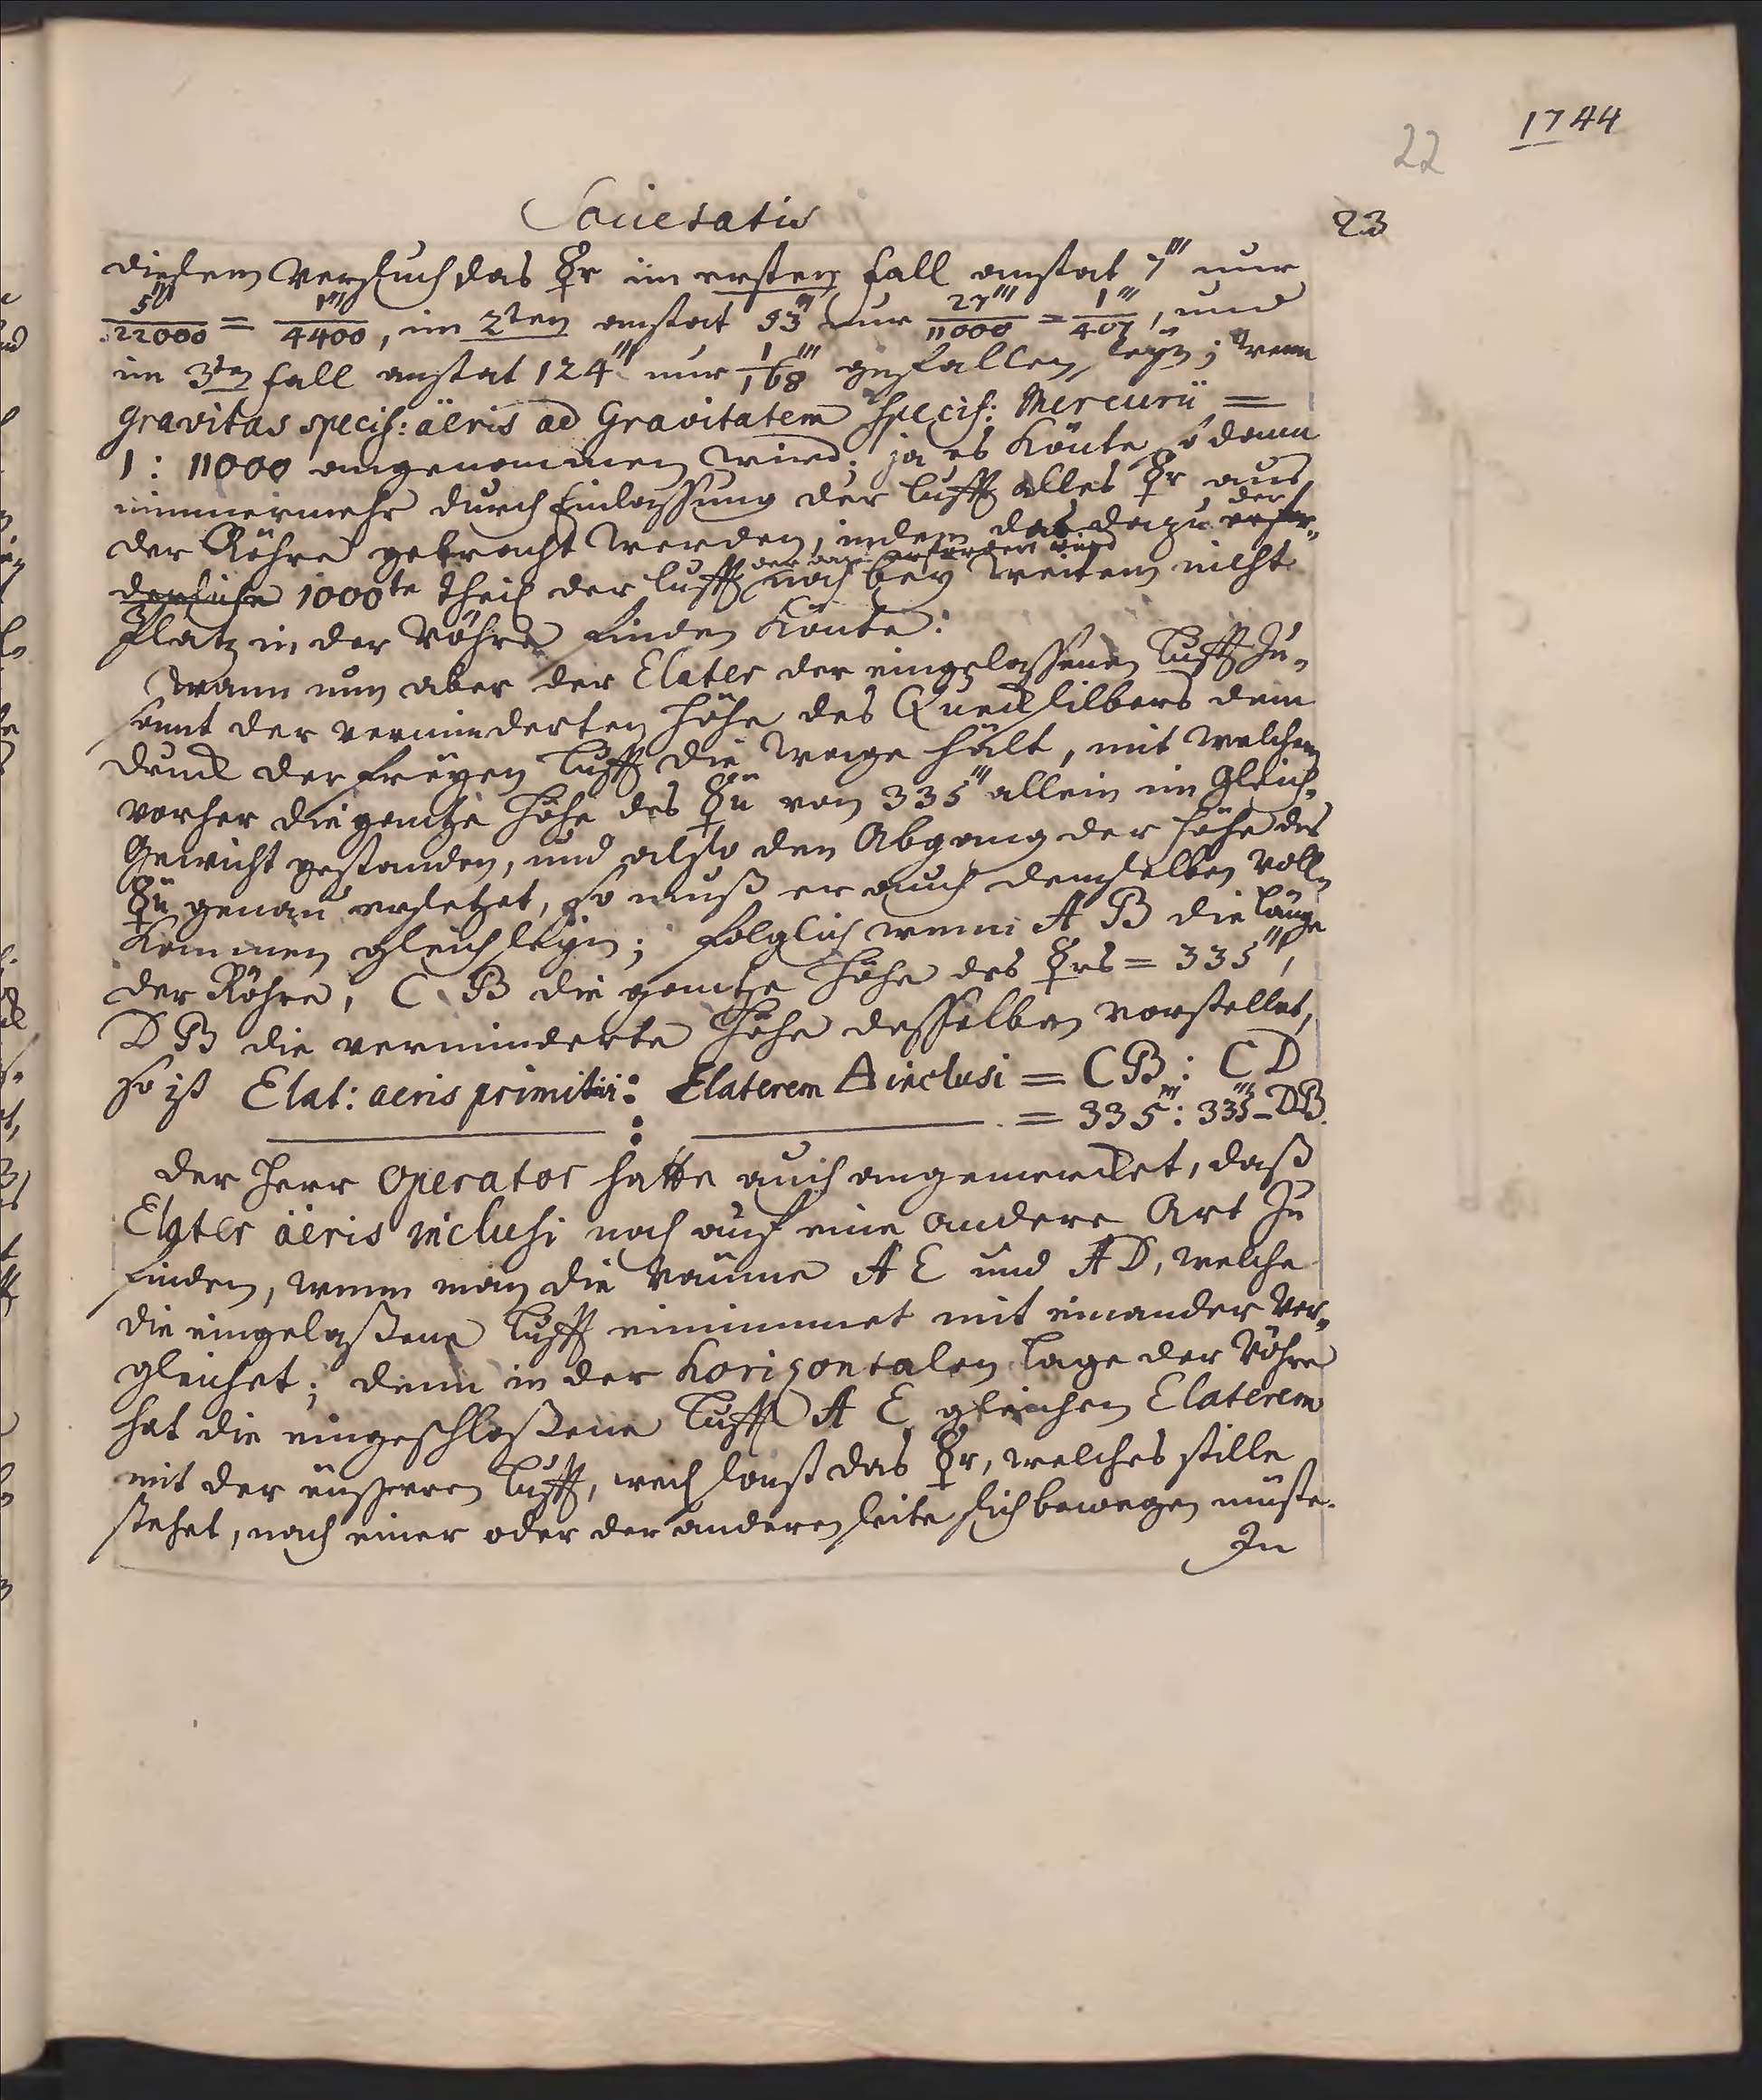 1744
22
Societatis 23
diesem Versuch das ☿r im ersten fall anstat 7''' nur
5'''/22000 = 1'''/4400, im 2ten anstat 53''' nur 27'''/11000 = 1'''/407, und
im 3ten fall anstat 124''' nur 1/168''' gefallen seyn; wenn
Gravitas specif: äeris ad Gravitatem specif: Mercurii =
1 : 11000 angenommen wird; ja es könte so dann
nimmermehr durch Einlassung der Lufft alles ☿r aus
der Röhre gebracht werden, indem das dazu erfor-
der
derliche 1000te Theil der Lufft noch bey weitem nicht
der dazu erfordert wird
Platz in der Röhre finden könte.
Wann nun aber der Elater der eingelassenen Lufft zu-
samt der verminderten Höhe des Quecksilbers dem
Druck der freyen Lufft die Wage hält, mit welchem
vorher die gantze Höhe des ☿ii von 335''' allein im Gleich-
Gewicht gestanden, und also den Abgang der Höhe des
☿ii genau ersetzet, so muß er auch demselben voll-
kommen gleich seyn; folglich wenn A B die Länge
der Röhre, C B die gantze Höhe des ☿rs = 335''',
D B die verminderte Höhe desselben vorstellet,
so ist Elat: aeris primitivi : Elaterem 🜁 inclusi = CB : CD
: = 335''' : 335''' - DB.
Der Herr Operator hatte auch angemercket, daß
Elater äeris inclusi noch auf eine andere Art zu
finden, wenn man die Räume A E und A D, welche
die eingelaßene Lufft einnimmet mit einander ver-
gleichet; denn in der horizontalen Lage der Röhre
hat die eingeschloßene Lufft A E gleichen Elaterem
mit der äusseren Lufft, weil sonst das ☿r, welches stille
stehet, nach einer oder der anderen seite sich bewegen müste.
In